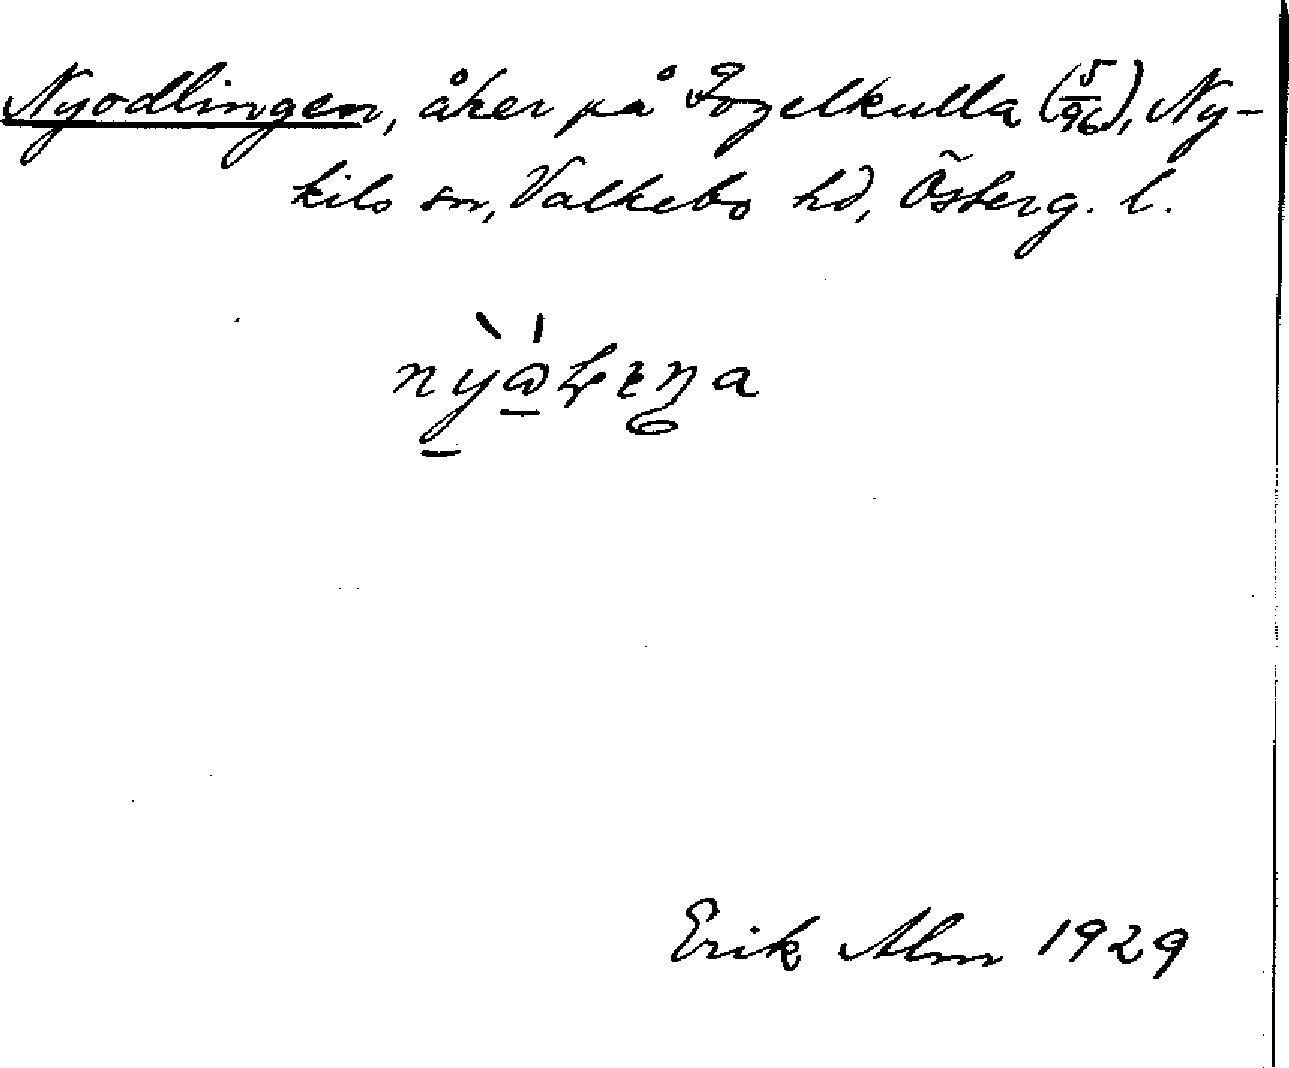 Nyodlingen, åker på Fogelkulla (5/96), Ny-
kils sn, Valkebo hd, Österg. l.
Erik Alm 1929